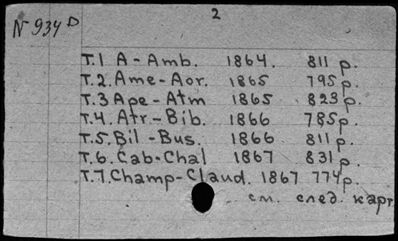 2
N 934 D
Т.1 A - Amb. 1864. 811 p.
Т.2. Ame - Aor. 1865 795 p.
Т.3 Ape - Atm 1865 823 p.
Т.4. Atr. - Bib. 1866 785 p.
Т.5. Bil - Bus. 1866 811 p.
Т.6. Cab - Chal 1867 831 p.
Т.7. Champ - Claud. 1867 774 p.
см. след. карт